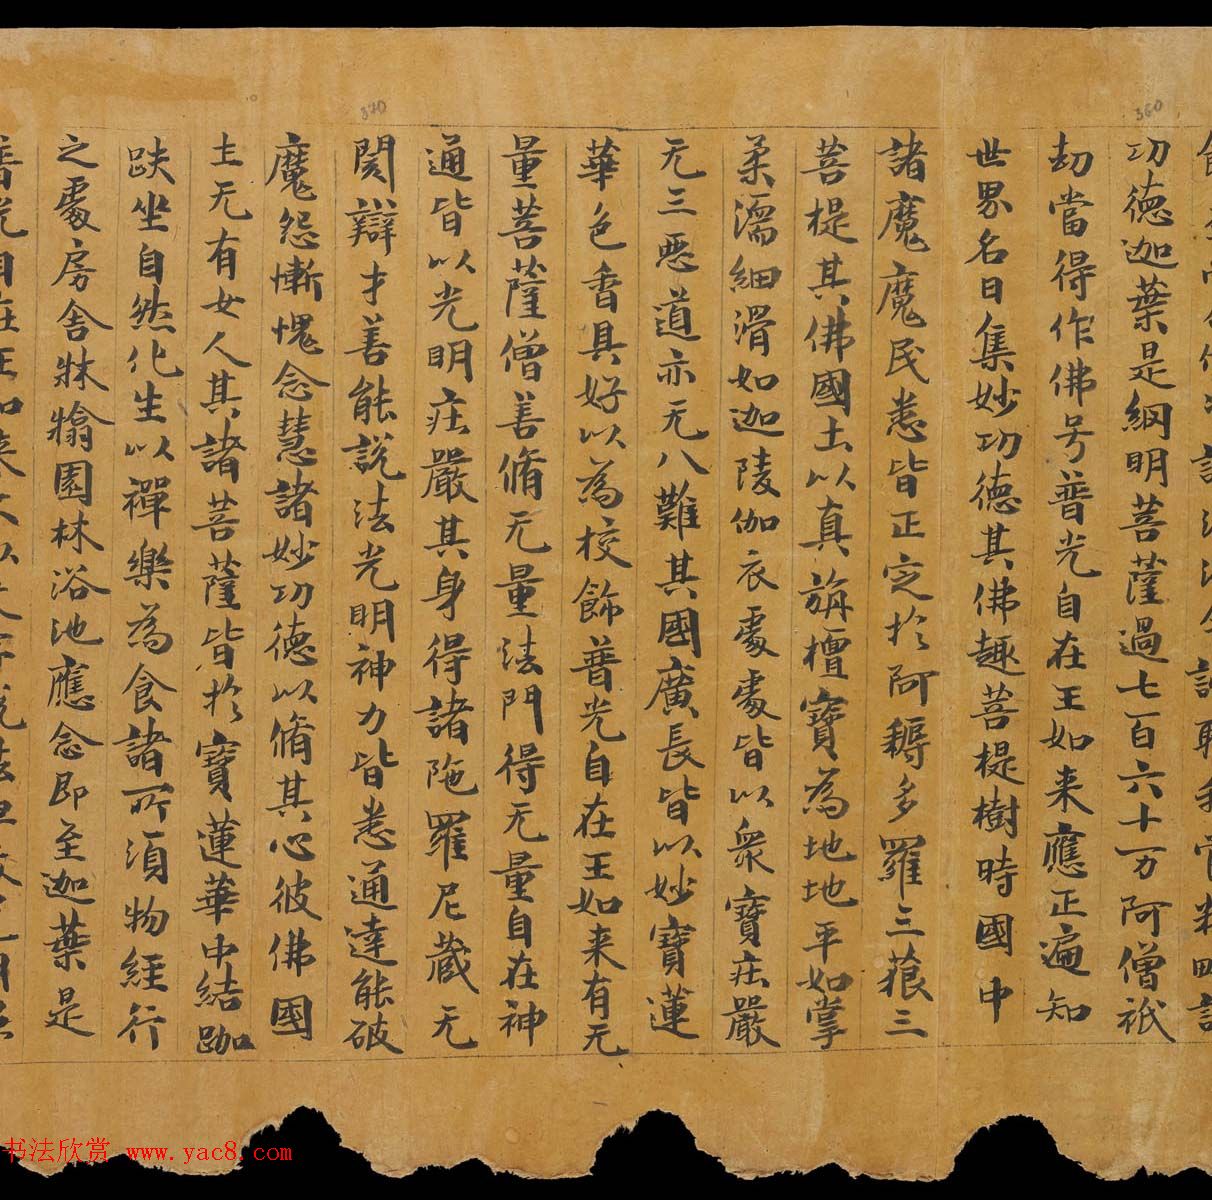 360
370
功德迦葉是網明菩薩過七百六十万阿僧祇
劫當得作佛号普光自在王如来應正遍知
世界名曰集妙功德其佛趣菩提樹時國中
諸魔魔民悉皆正定於阿耨多羅三藐三
菩提其佛國土以真旃檀寶為地地平如掌
柔濡細滑如迦陵伽衣處處皆以衆寶庄嚴
无三惡道亦无八難其國廣長皆以妙寶蓮
華色香具好以為校飾普光自在王如来有无
量菩薩僧善脩无量法門得无量自在神
通皆以光明庄嚴其身得諸陁羅尼藏无
閡辯才善能說法光明神力皆悉通達能破
魔怨慚愧念慧諸妙功德以脩其心彼佛國
土无有女人其諸菩薩皆於寶蓮華中結跏
趺坐自然化生以禪樂為食諸所須物經行
之處房舍牀榻園林浴池應念即至迦葉是
书法欣赏 www.yac8.com